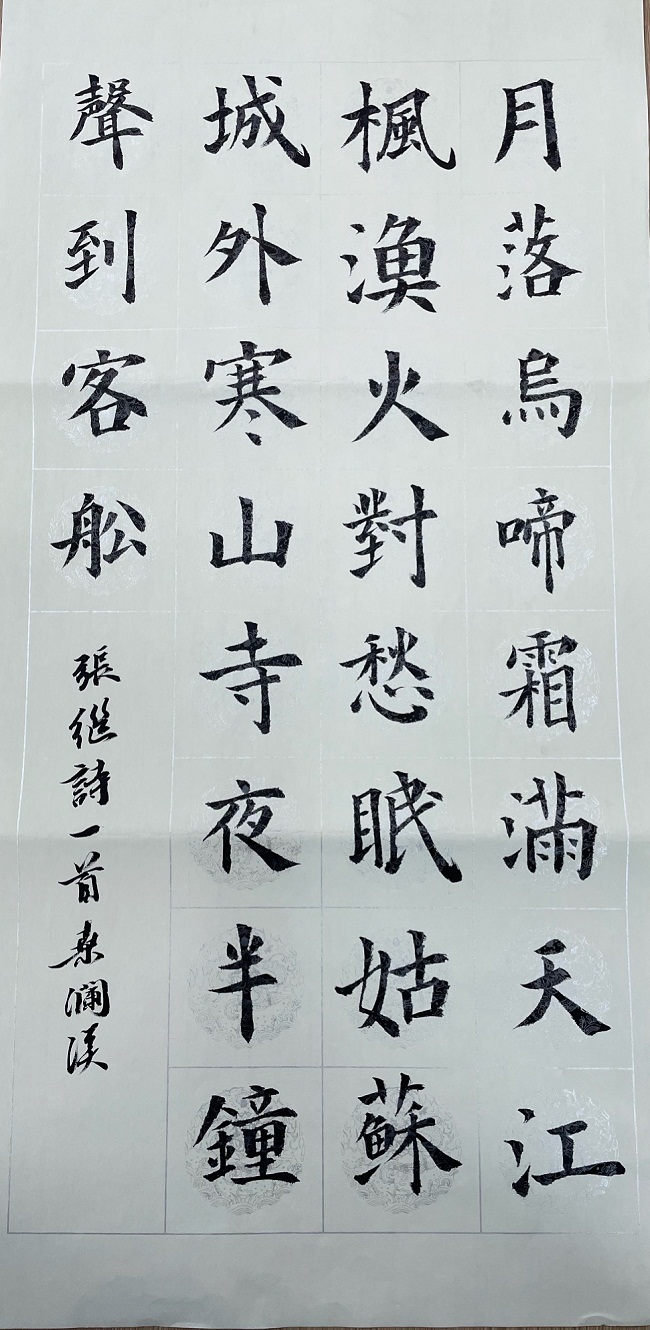 月落烏啼霜滿天江
楓漁火對愁眠姑蘇
城外寒山寺夜半鐘
聲到客舩
張继詩一首瀾